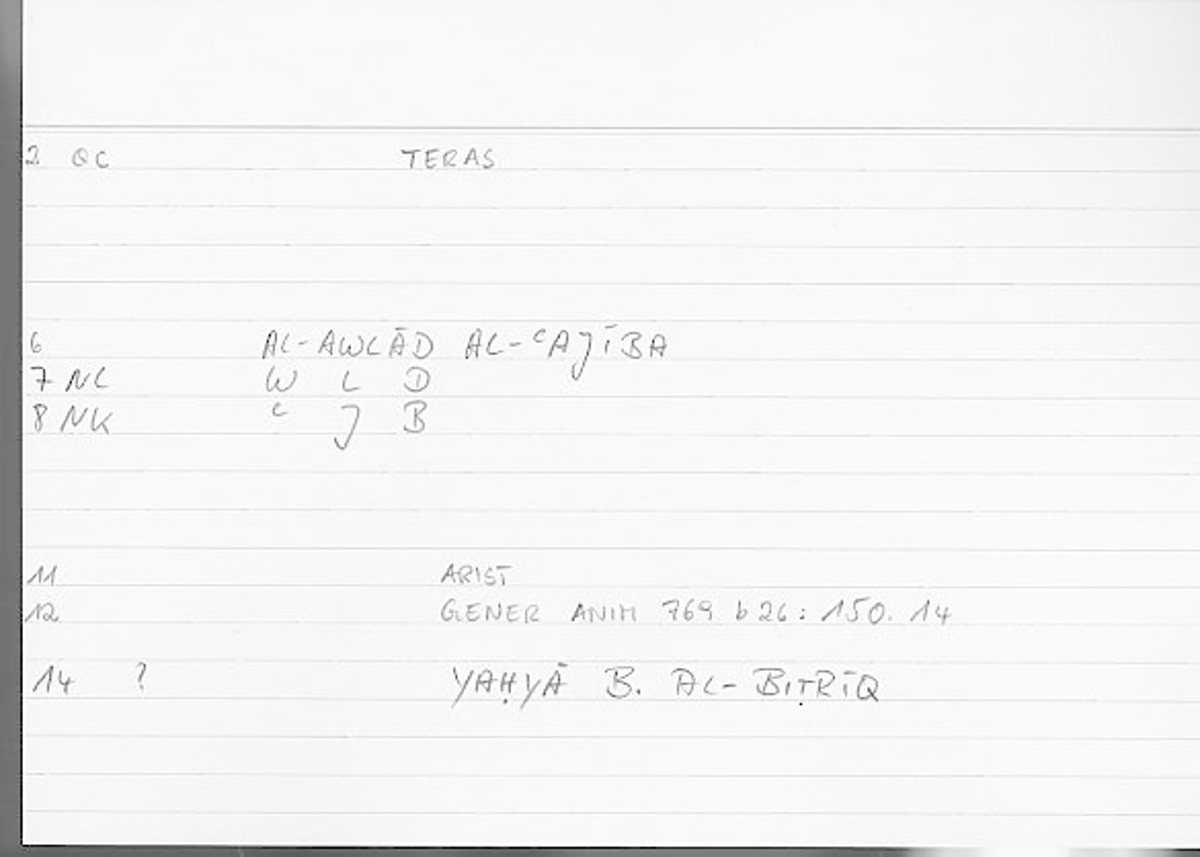 2 QC TERAS
6 AL-AWLĀD AL-ʿAJĪBA
7 NL W L D
8 NK ʿ J B
11 ARIST
12 GENER ANIM 769 b 26: 150. 14
14 ? YAḤYĀ B. AL-BIṬRĪQ